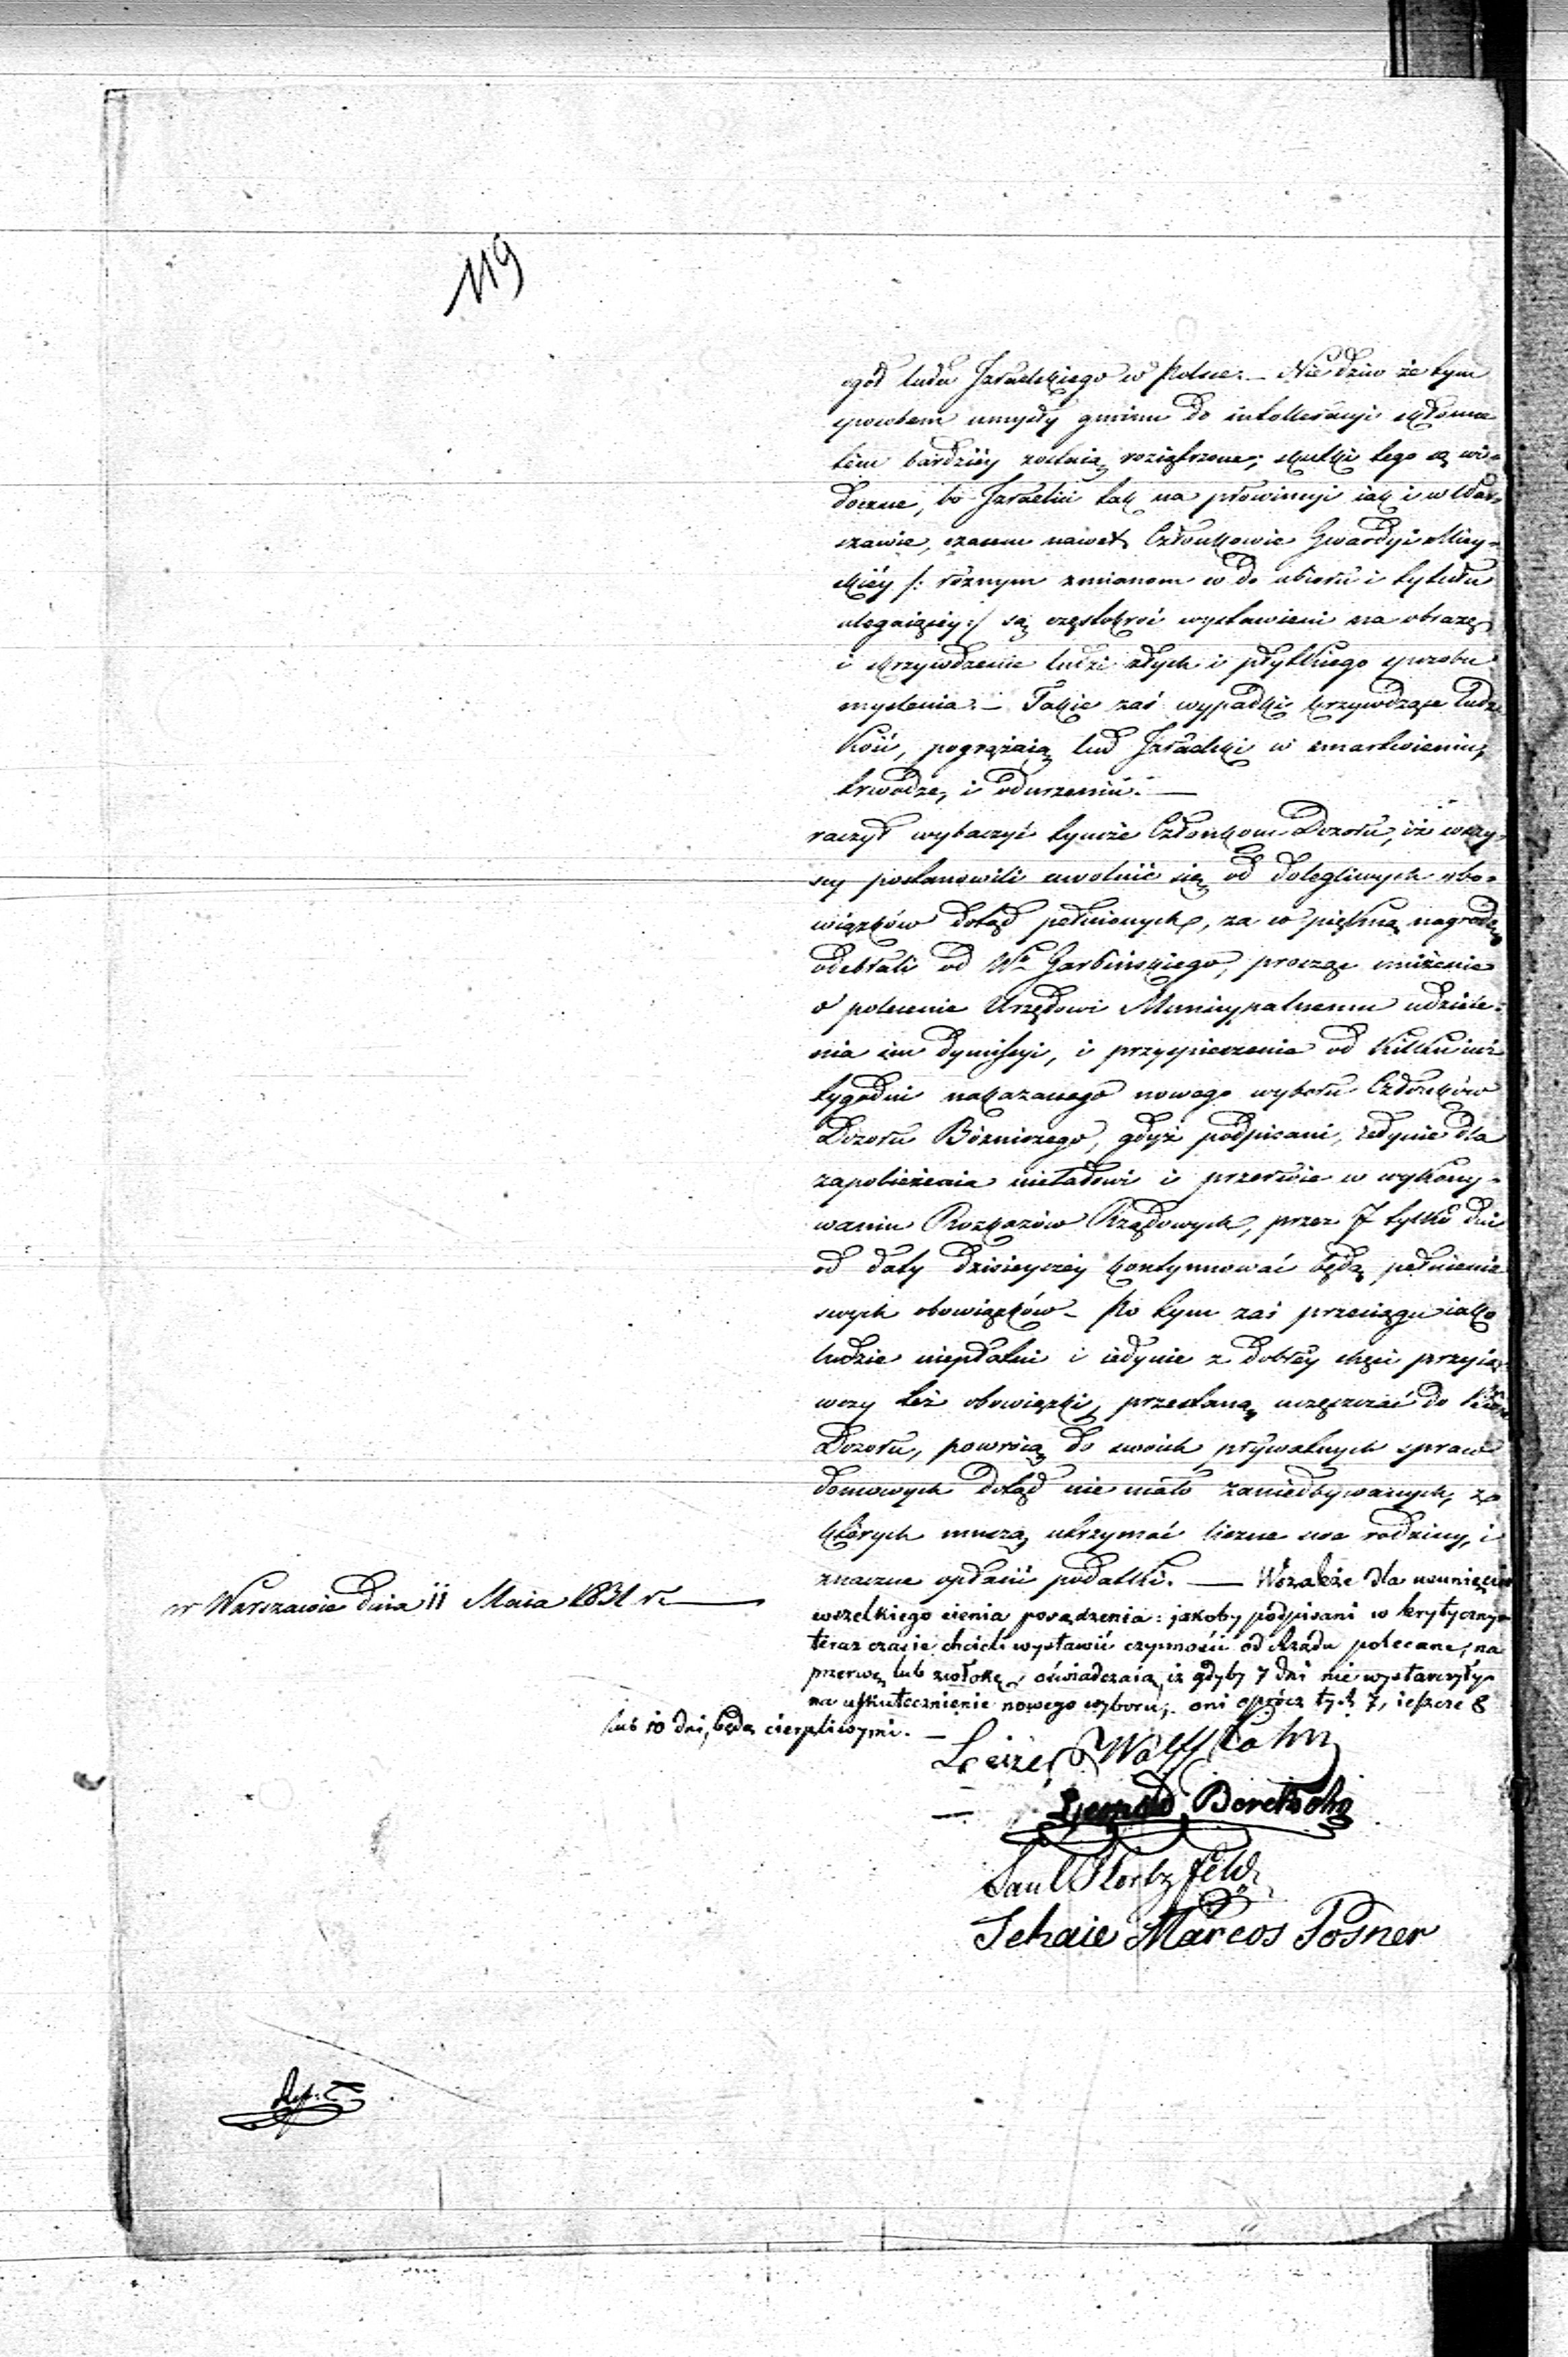 119
gód ludu Izraelskiego w Polsce. – Nie dziw że tym
sposobem umysły gminu do intolleracyi skłonne
tém bardziéy zostaią roziątrzone; skutki tego są wi=
doczne, bo Izraelici tak na prowincyi iak i w War=
szawie, czasem nawet Członkowie Gwardyi Miey=
skiéy /: różnym zmianom co do ubioru i tytułu
ulegaiącéy :/ są częstokroć wystawieni na obrazę
i skrzywdzenie ludzi złych i płytkiego sposobu
myslenia. – Takie zaś wypadki krzywdzące ludz
kość, pogrążaią lud Izraelski w zmartwieniu,
trwodze, i odurzeniu. —
raczył wybaczyć tymże Członkom Dozoru, iż wszy=
scy postanowili uwolnić się od dolegliwych obo=
wiązków dotąd pełnionych, za co piękną nagrodę
odebrali od Wo Garbińskiego, prosząc uniżenie
o polecenie Urzędowi Municypalnemu udziele=
nia im dymissyi, i przyspieszenia od kilku iuż
tygodni nakazanego nowego wyboru Członków
Dozoru Bóżniczego, gdyż podpisani, iedynie dla
zapobieżenia nieładowi i przerwie w wykony=
waniu Rozkazów Rządowych, przez 7 tylko dni
od daty dzisieyszey kontynuować będą pełnienie
swych obowiązków – Po tym zaś przeciągu iako
ludzie niepłatni i iedynie z dobréy chęci przyią=
wszy też obowiązki, przestaną uczęszczać do
Dozoru, powrócą do swoich prywatnych spraw
domowych dotąd nie mało zaniedbywanych, z
których muszą utrzymać liczne swe rodziny, i
znaczne opłacić podatki. — Wszakże dla usunięcia
wszelkiego cienia posądzenia: jakoby podpisani w krytycznym
teraz czasie chcieli wystawić czynności od Rządu polecane, na
przerwę lub zwłokę, oświadczaią, iż gdyby 7 dni nie wystarczyły
na uskutecznienie nowego wyboru, oni oprócz tych 7, ieszcze 8
lub 10 dni, będą cierpliwymi. —
w Warszawie dnia 11 Maia 1831 r. —
Leizer Wolff Cohn
Saul
Jehaie Marcos Posner